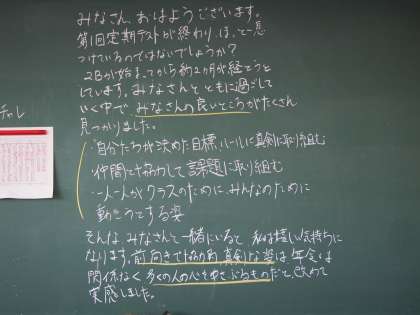 みなさん、おはようございます。
第1回定期テストが終わり、ほっと一息
つけているのではないでしょうか?
2Bが始まってから約2ヶ月が経とうと
しています。みなさんとともに過ごして
いく中で、みなさんの良いところがたくさん
見つかりました。
・自分たちが決めた目標、ルールに真剣に取り組む
・仲間と協力して課題に取り組む
・一人一人がクラスのために、みんなのために
動こうとする姿
そんな、みなさんと一緒にいると、私は嬉しい気持ちに
なります。前向きで協力的、真剣な姿は年令に
関係なく多くの人の心を中さぶるものだと、改めて
実感しました。
チャレ